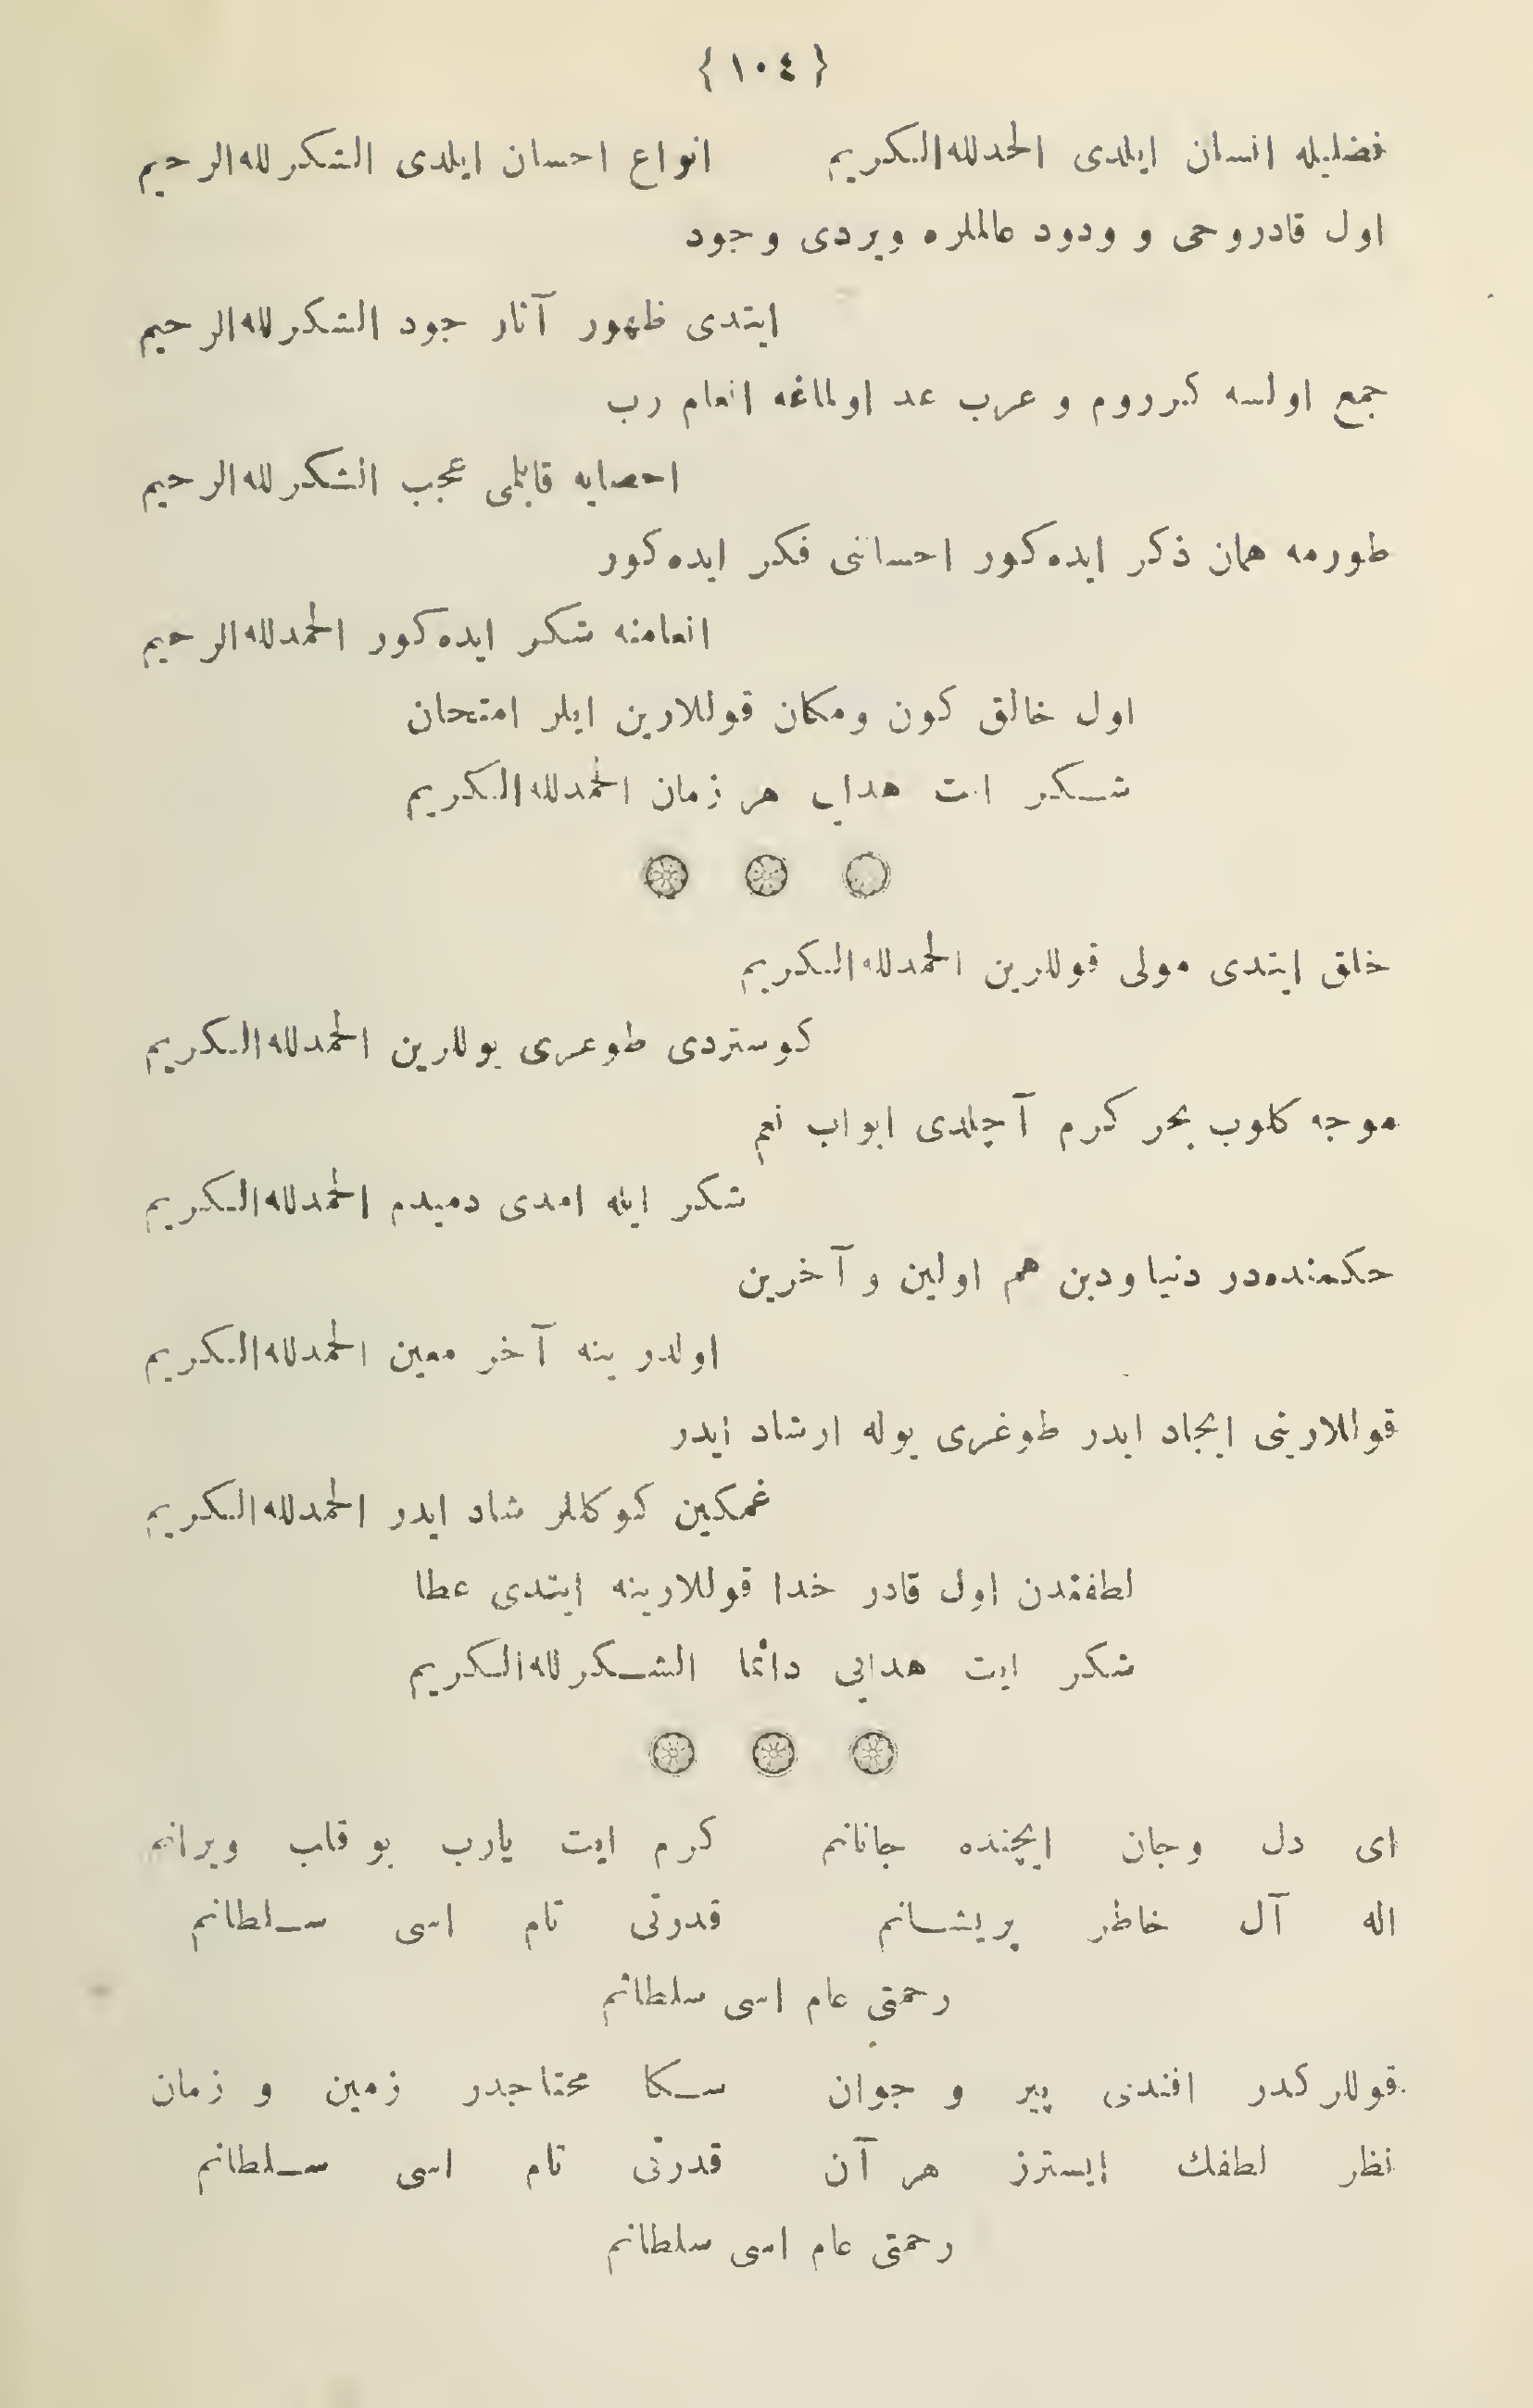 { ١٠٤ }
فضليله انسان ايلدى الحمدلله‌الكريم انواع احسان ايلدى الشكرلله‌الرحيم
اول قادروحى و ودود عالملره ويردى وجود
ايتدى ظهور آثار جود الشكرلله‌الرحيم
جمع اولسه كرروم و عرب عد اولماغه انعام رب
احصايه قابلمى عجب الشكرلله‌الرحيم
طورمه همان ذكر ايده‌كور احساننى فكر ايده‌كور
انعامنه شكر ايده‌كور الحمدلله‌الرحيم
اول خالق كون ومكان قوللارين ايلر امتحان
شكر ات هدايى هر زمان الحمدلله‌الكريم
خلق ايتدى مولى قوللرين الحمدلله‌الكريم
كوستردى طوغرى يوللرين الحمدلله‌الكريم
موجه كلوب بحر كرم آچلدى ابواب نعم
شكر ايله امدى دمبدم الحمدلله‌الكريم
حكمنده‌در دنيا ودين هم اولين و آخرين
اولدر ينه آخر معين الحمدلله‌الكريم
قوللارينى ايجاد ايدر طوغرى يوله ارشاد ايدر
غمكين كوكللر شاد ايدر الحمدلله‌الكريم
لطفندن اول قادر خدا قوللارينه ايتدى عطا
شكر ايت هدايى دائما الشكرلله‌الكريم
اى دل وجان ايچنده جانانم كرم ايت يارب بو قلب ويرانم
اله آل خاطر پريشانم قدرتى تام اسى سلطانم
رحمتى عام اسى سلطانم
قوللركدر افندى پير و جوان سكا محتاجدر زمين و زمان
نظر لطفك ايسترز هر آن قدرتى تام اسى سلطانم
رحمتى عام اسى سلطانم